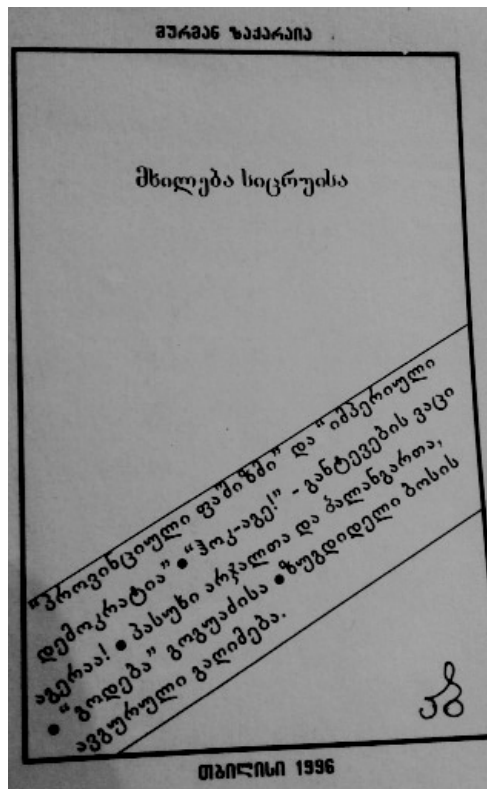 მურმან ზაქარაია
მხილება სიცრუისა
“პროვინციული ფაშიზმი” და “იმპერიული
დემოკრატია” • “ჰოკ-აგე!” - განტევების ვაცი
აგერაა! • პასუხი არჯალთა და ბალანგართა,
• “გოდება” გოგუაძისა • ზუგდიდელი ბოსის
ავგურული გაღიმება.
თბილისი 1996